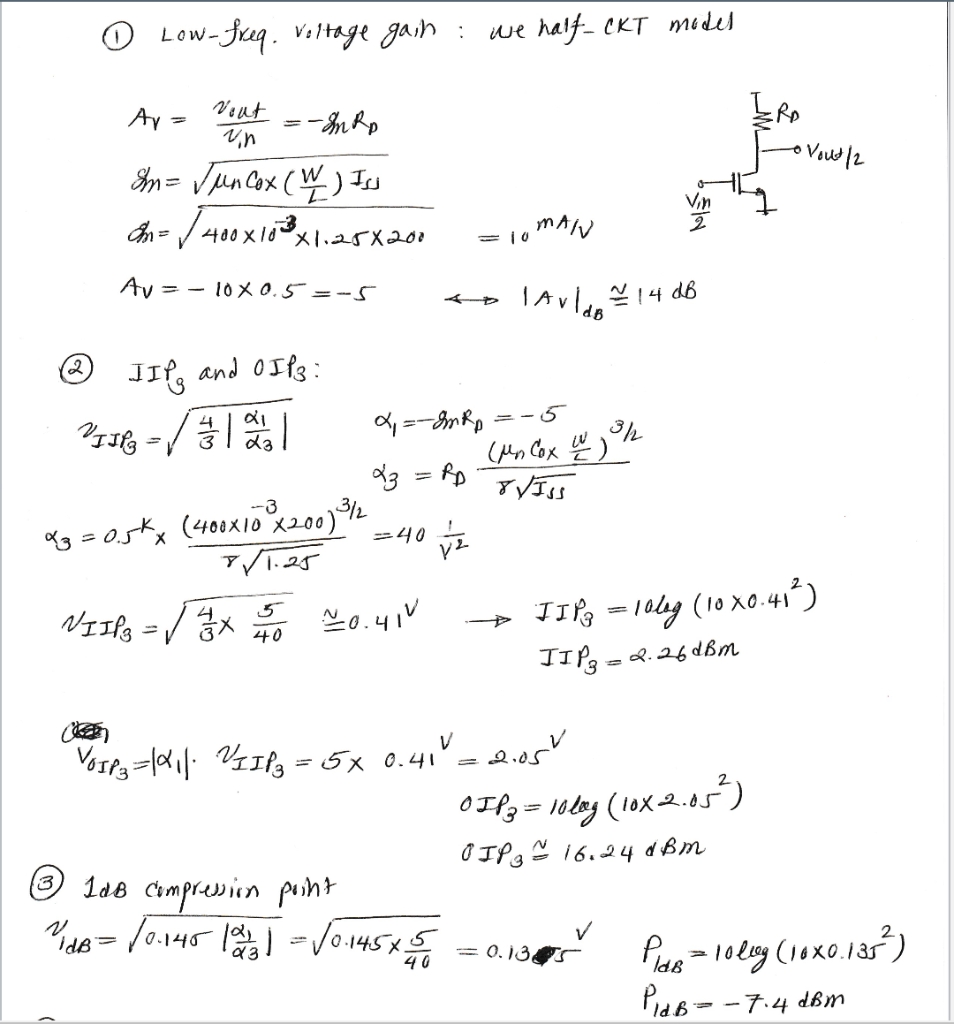 ① Low-freq. voltage gain : use half-CKT model
Av = Vout / Vin = -gm RD
gm = √( μn Cox (W/L) ISS )
gm = √( 400×10⁻³ × 1.25 × 200 ) = 10 mA/V
Av = - 10 × 0.5 = -5 ↔ |Av|dB ≅ 14 dB
RD
Vout/2
Vin/2
② IIP3 and OIP3:
VIIP3 = √( 4/3 |α1/α3| ) α1 = -gm RD = -5
α3 = RD (μn Cox W/L)^3/2 / 8√ISS
α3 = 0.5K × (400×10⁻³×200)^3/2 / 8√1.25 = 40 1/V²
VIIP3 = √( 4/3 × 5/40 ) ≅ 0.41 V → IIP3 = 10log (10 × 0.41²)
IIP3 = 2.26 dBm
VOIP3 = |α1|. VIIP3 = 5 × 0.41 V = 2.05 V
OIP3 = 10log (10×2.05²)
OIP3 ≅ 16.24 dBm
③ 1dB compression point
V1dB = √( 0.145 |α1/α3| ) = √( 0.145 × 5/40 ) = 0.135 V P1dB = 10log (10×0.135²)
P1dB = -7.4 dBm